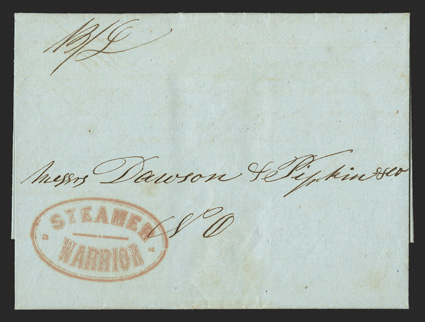 B/L
Messrs Dawson & Pipkin & co
N O
STEAMER
WARRIOR